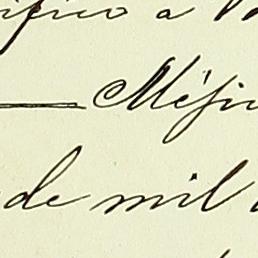 ifico a
Méji
de mil